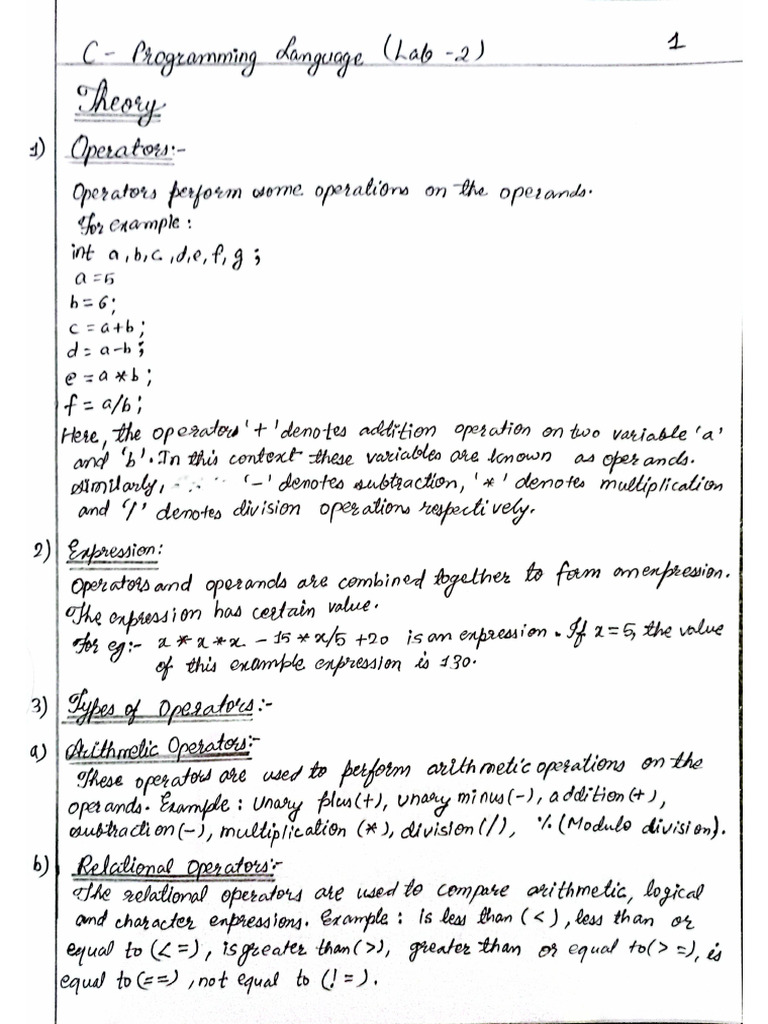 C - Programming Language (Lab - 2)
1
Theory
1) Operators:-
Operators perform some operations on the operands.
For example :
int a, b, c, d, e, f, g ;
a = 5
b = 6;
c = a+b ;
d = a-b ;
e = a * b ;
f = a/b ;
Here, the operators '+' denotes addition operation on two variable 'a'
and 'b'. In this context these variables are known as operands.
similarly, '-' denotes subtraction, '*' denotes multiplication
and '/' denotes division operations respectively.
2) Expression:
Operators and operands are combined together to form an expression.
The expression has certain value.
For eg:- x * x * x - 15 * x/5 + 20 is an expression. If x = 5, the value
of this example expression is 130.
3) Types of Operators:-
a) Arithmetic Operators:-
These operators are used to perform arithmetic operations on the
operands. Example : Unary plus(+), unary minus(-), addition(+),
subtraction(-), multiplication (*), division(/), % (Modulo division).
b) Relational Operators:-
The relational operators are used to compare arithmetic, logical
and character expressions. Example : is less than (<), less than or
equal to (<=), is greater than(>), greater than or equal to(>=), is
equal to(==), not equal to (!=).